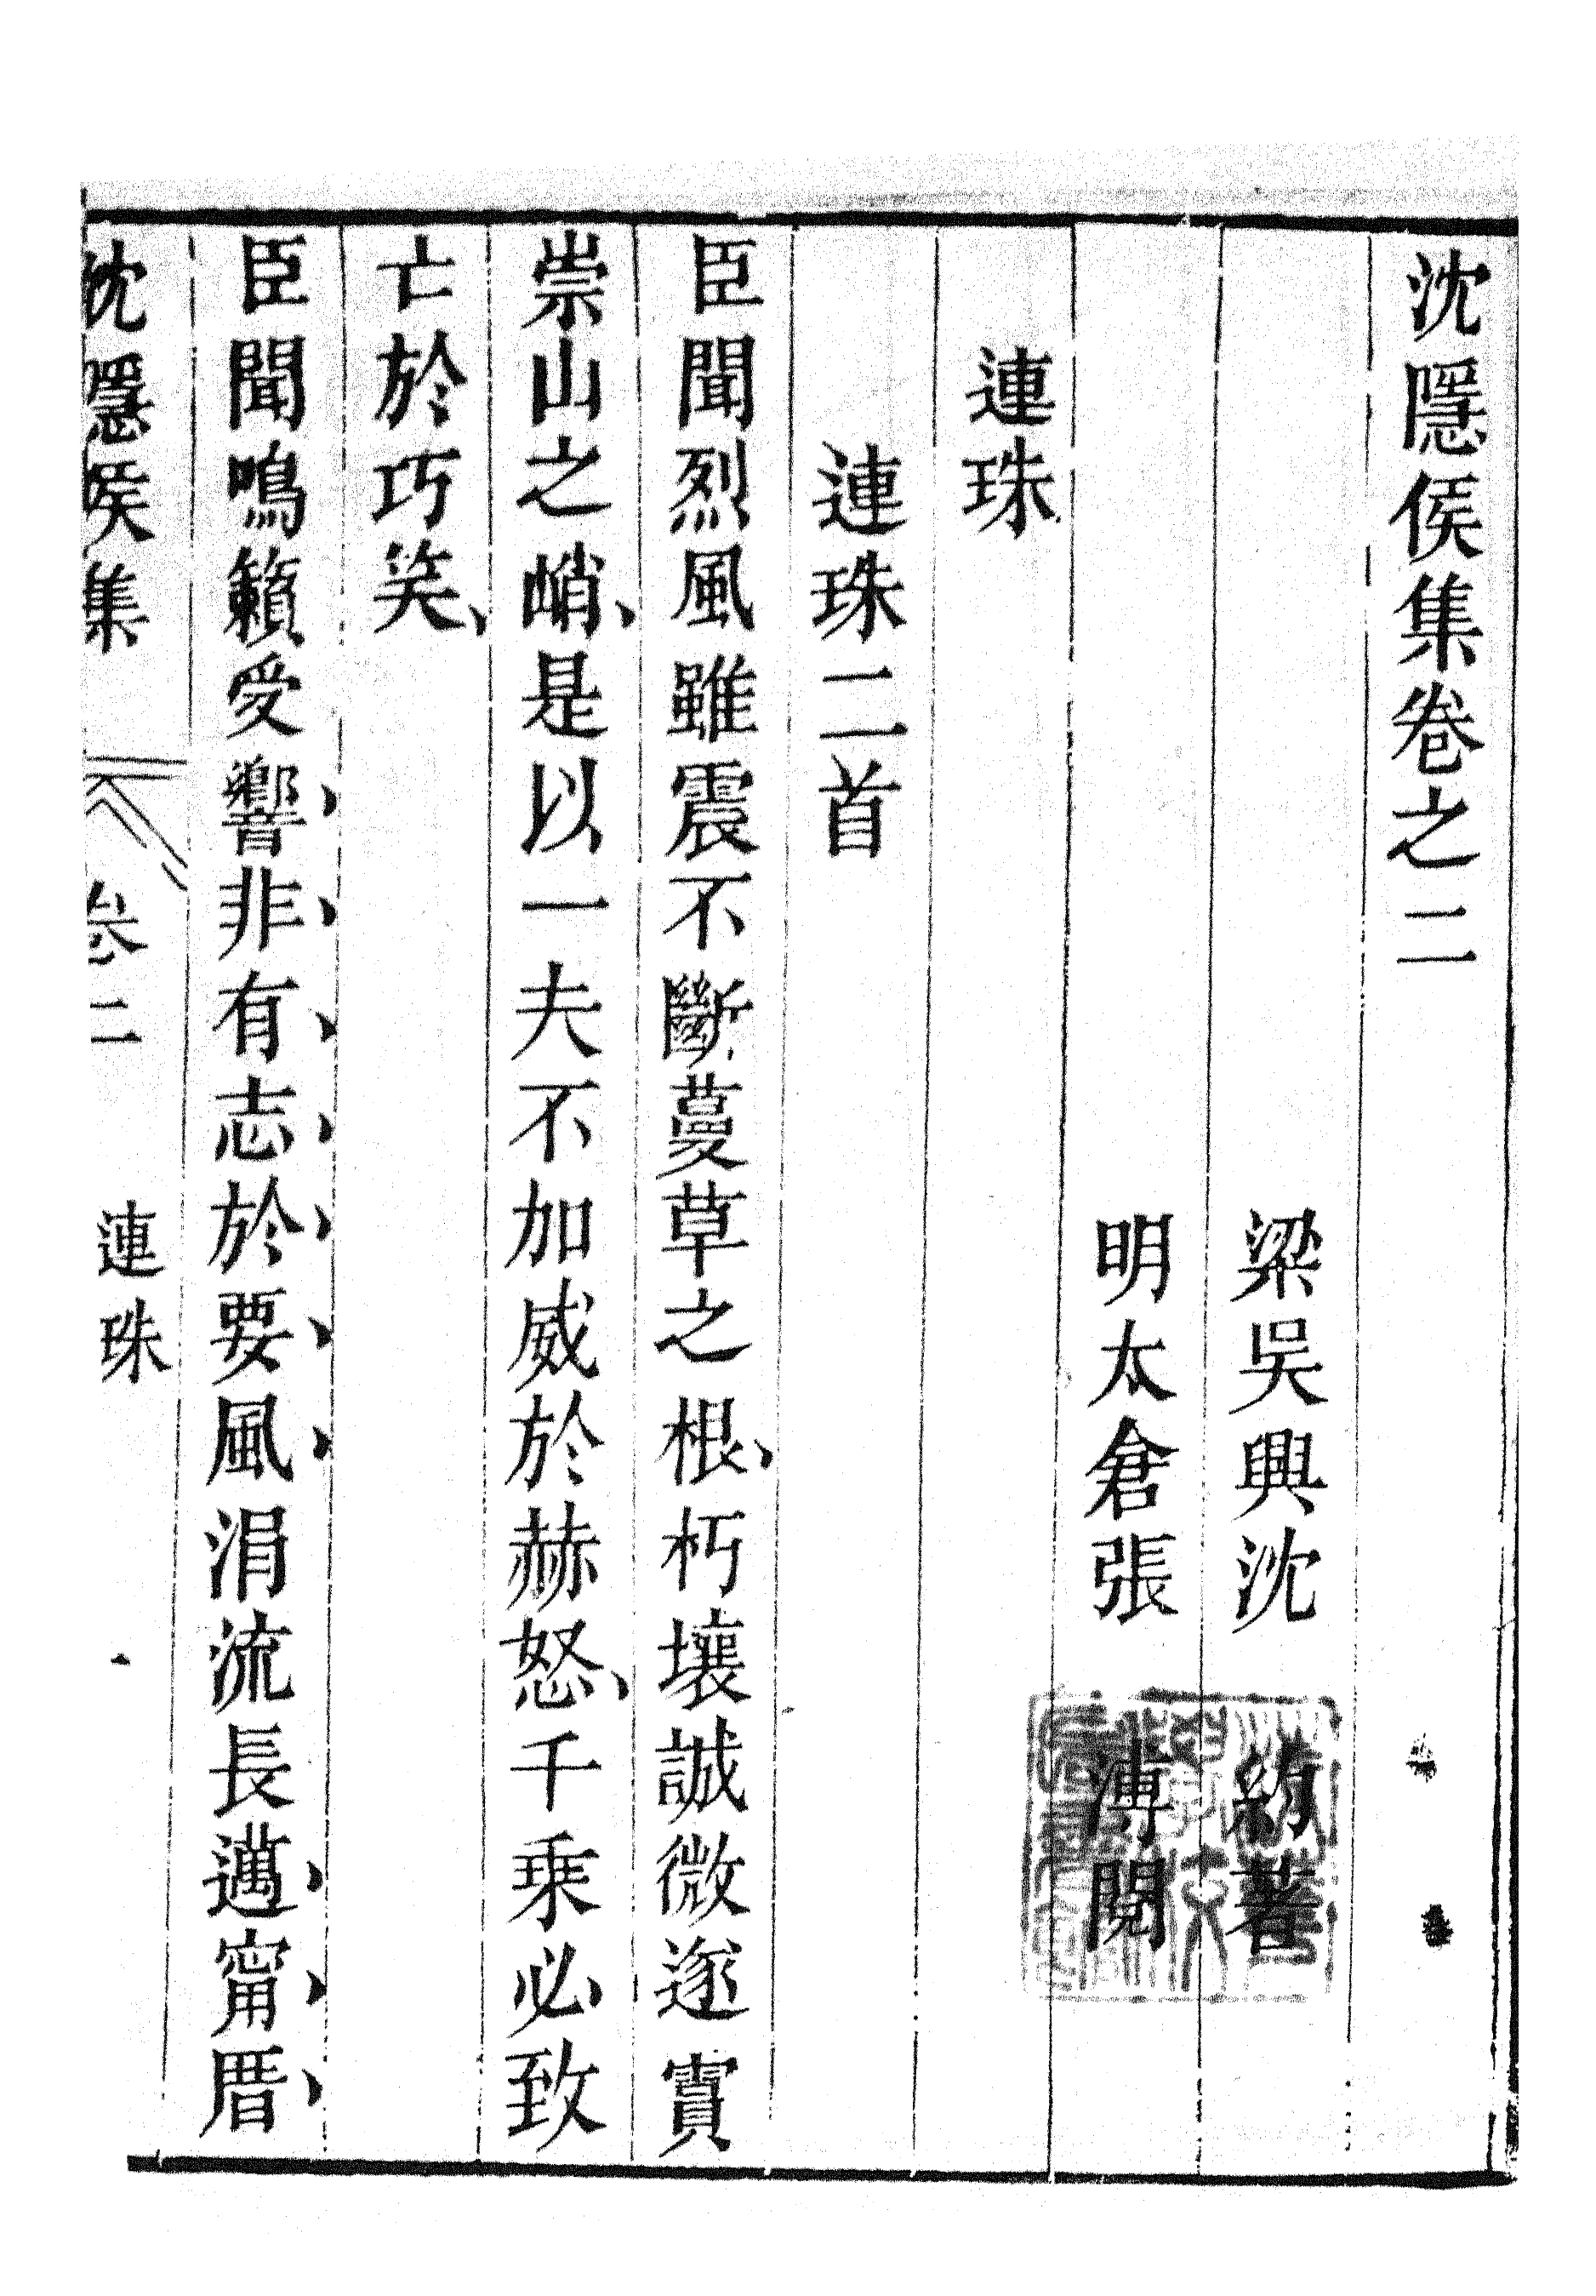 沈隱侯集卷之二
梁吳興沈 約著
明太倉張 溥閱
連珠
連珠二首
臣聞烈風雖震不斷蔓草之根、朽壤誠微遂賈
崇山之峭、是以一夫不加威於赫怒、千乗必致
亡於巧笑、
臣聞鳴籟受響、非、有、志、於、要、風、涓流長邁、甯、厝、
沈隱侯集 卷二 連珠 一